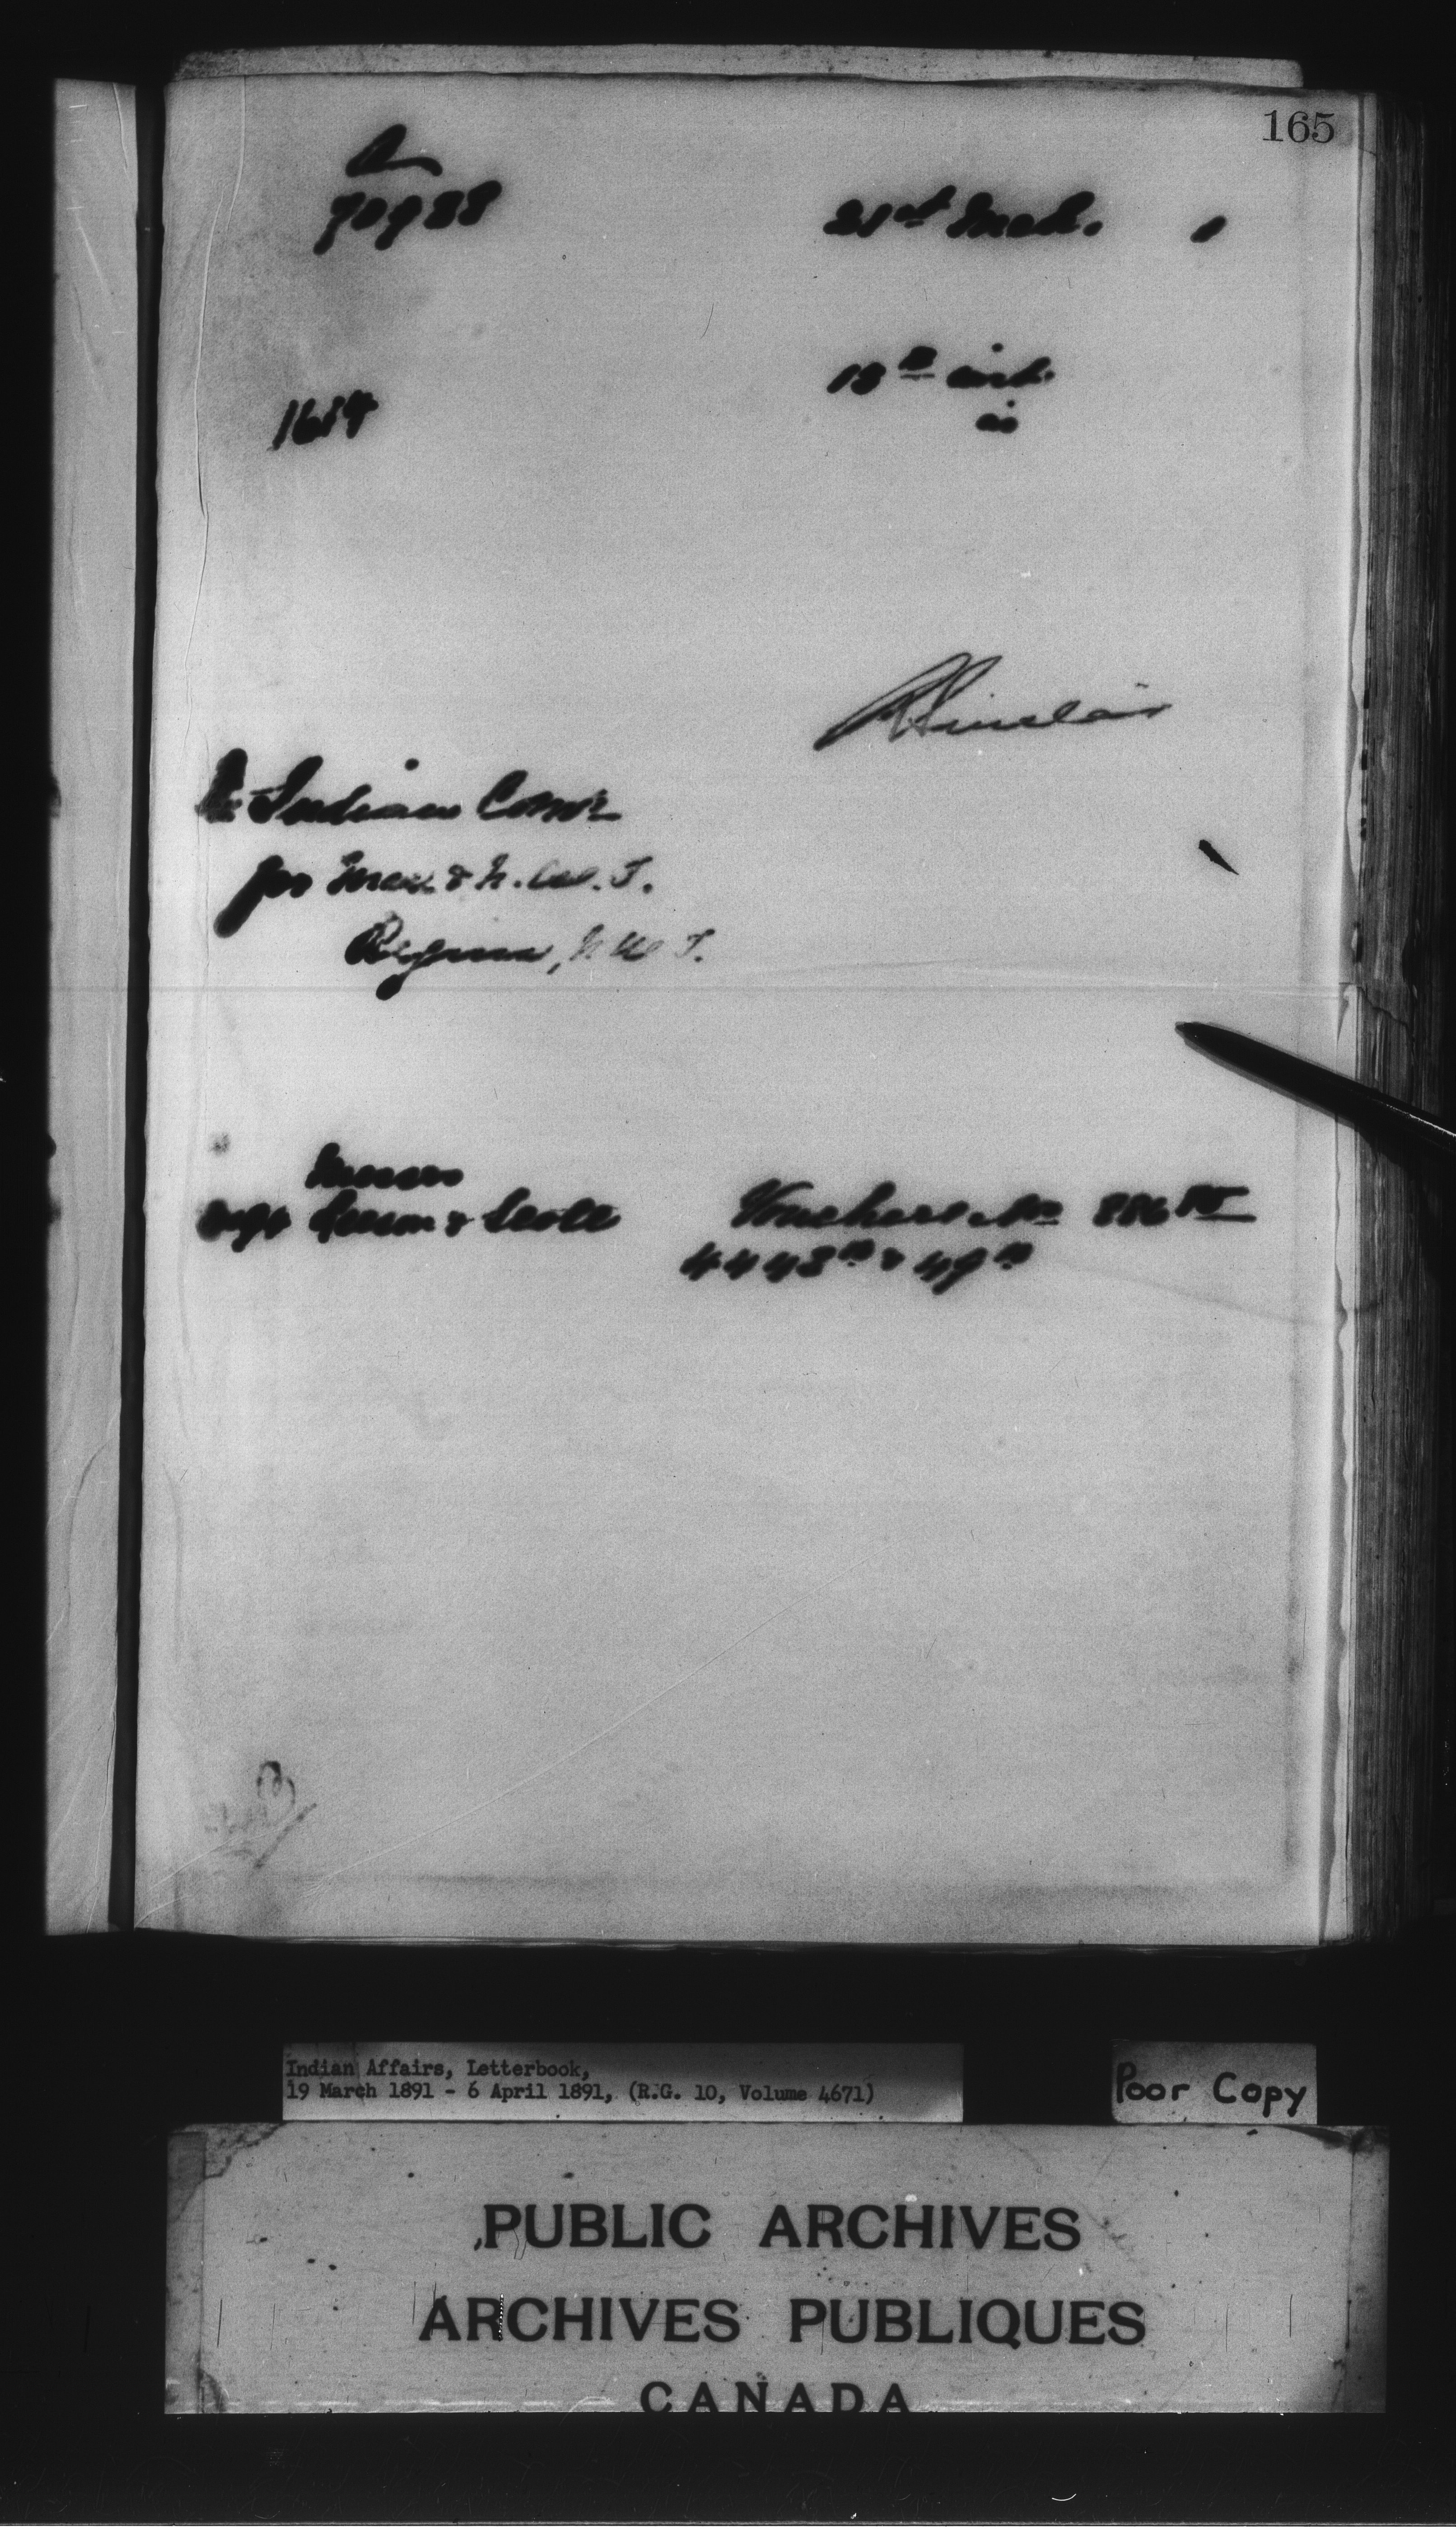 165
70988
21st Mch. 1
18th inst.
is
1614
R Sinclair
Indian Comr
for Man. & N. W. T.
Regina, N W T.
Messrs
Leeson & Scott
Vouchers No 886
4443 & 49
Indian Affairs, Letterbook,
19 March 1891 - 6 April 1891, (R.G. 10, Volume 4671)
Poor Copy
PUBLIC ARCHIVES
ARCHIVES PUBLIQUES
CANADA